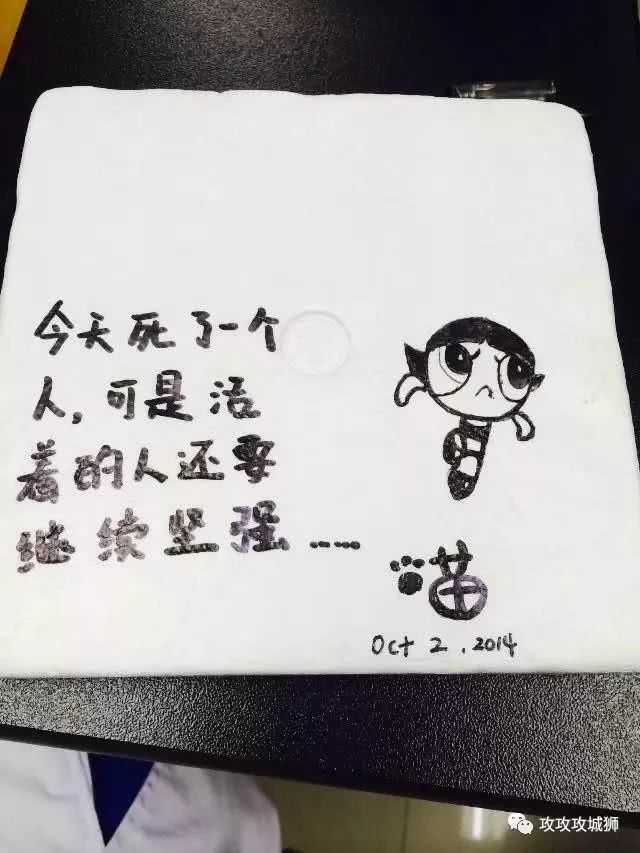 今天死了一个
人,可是活
着的人还要
继续坚强……
喵
Oct 2.2014
攻攻攻城狮